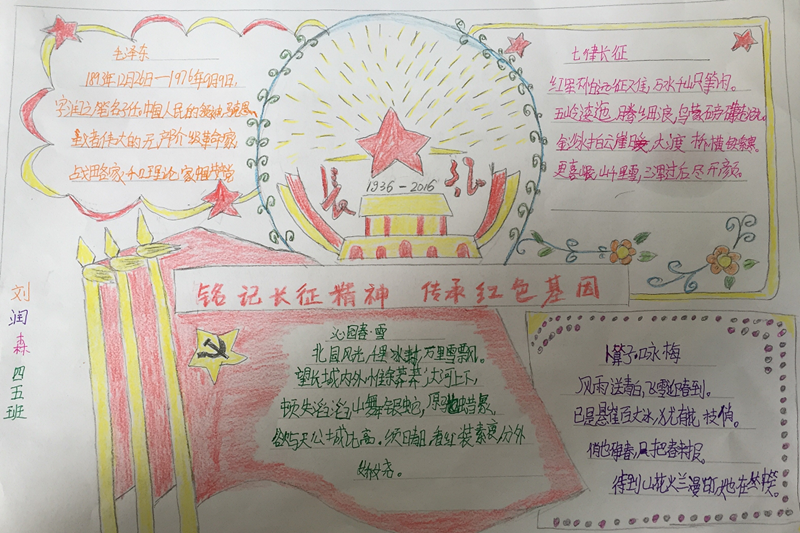 毛泽东
1893年12月26日—1976年9月9日,
字润之,笔名子任。中国人民的领袖,
者伟大的无产阶级革命家
战略家,和理论家
长征
1936-2016
七律长征
红军不怕远征难,万水千山只等闲。
五岭逶迤腾细浪,乌蒙磅礴走泥丸。
金沙水拍云崖暖,大渡桥横铁索寒。
更喜岷山千里雪,三军过后尽开颜。
铭记长征精神 传承红色基因
刘润森四五班
沁园春·雪
北国风光,千里冰封,万里雪飘。
望长城内外,惟余莽莽,大河上下,
顿失滔滔,山舞银蛇,原驰蜡象,
欲与天公试比高,须日晴,看红装素裹,分外
妖娆。
卜算子·咏梅
风雨送春归,飞雪迎春到。
已是悬崖百丈冰,犹有花枝俏。
俏也不争春,只把春来报。
待到山花烂漫时,她在丛中笑。